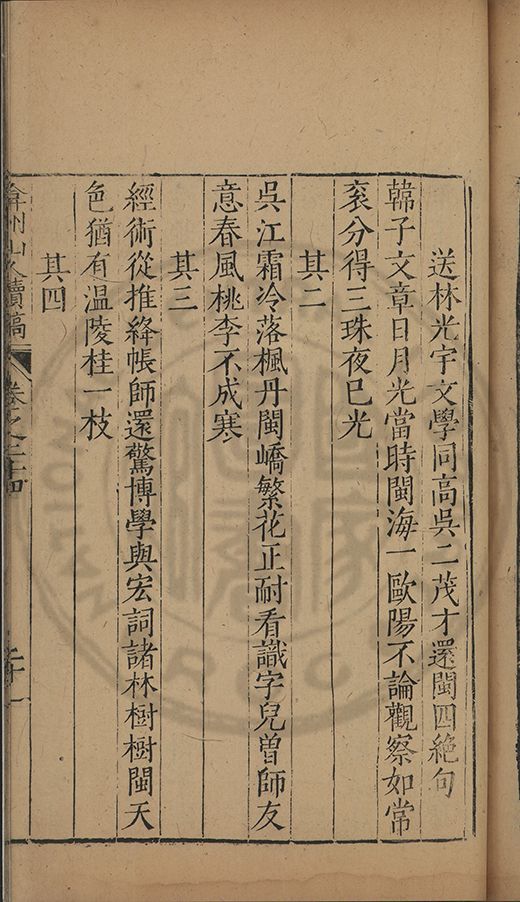 送林光宇文學同高吳二茂才還閩四絕句
韓子文章日月光當時閩海一歐陽不論觀察如常
袞分得三珠夜已光
其二
吳江霜冷落楓丹閩嶠繁花正耐看識字兒曾師友
意春風桃李不成寒
其三
經術從推絳帳師還驚博學與宏詞諸林樹樹閩天
色猶有温陵桂一枝
其四
弇州山人續稿
卷之二十四
二十一